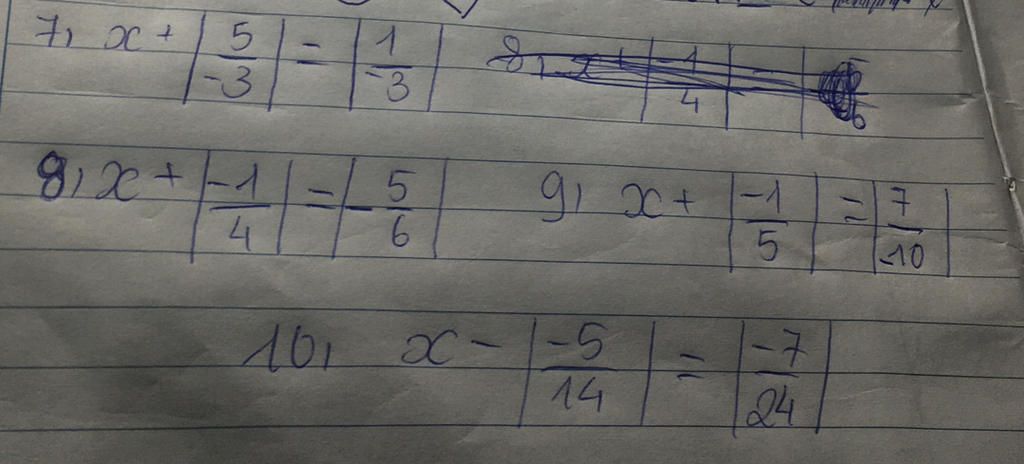 7, x + |5/-3| = |1/-3|
8, x + |-1/4| = |-5/6| 9, x + |-1/5| = |7/-10|
10, x - |-5/14| = |-7/24|